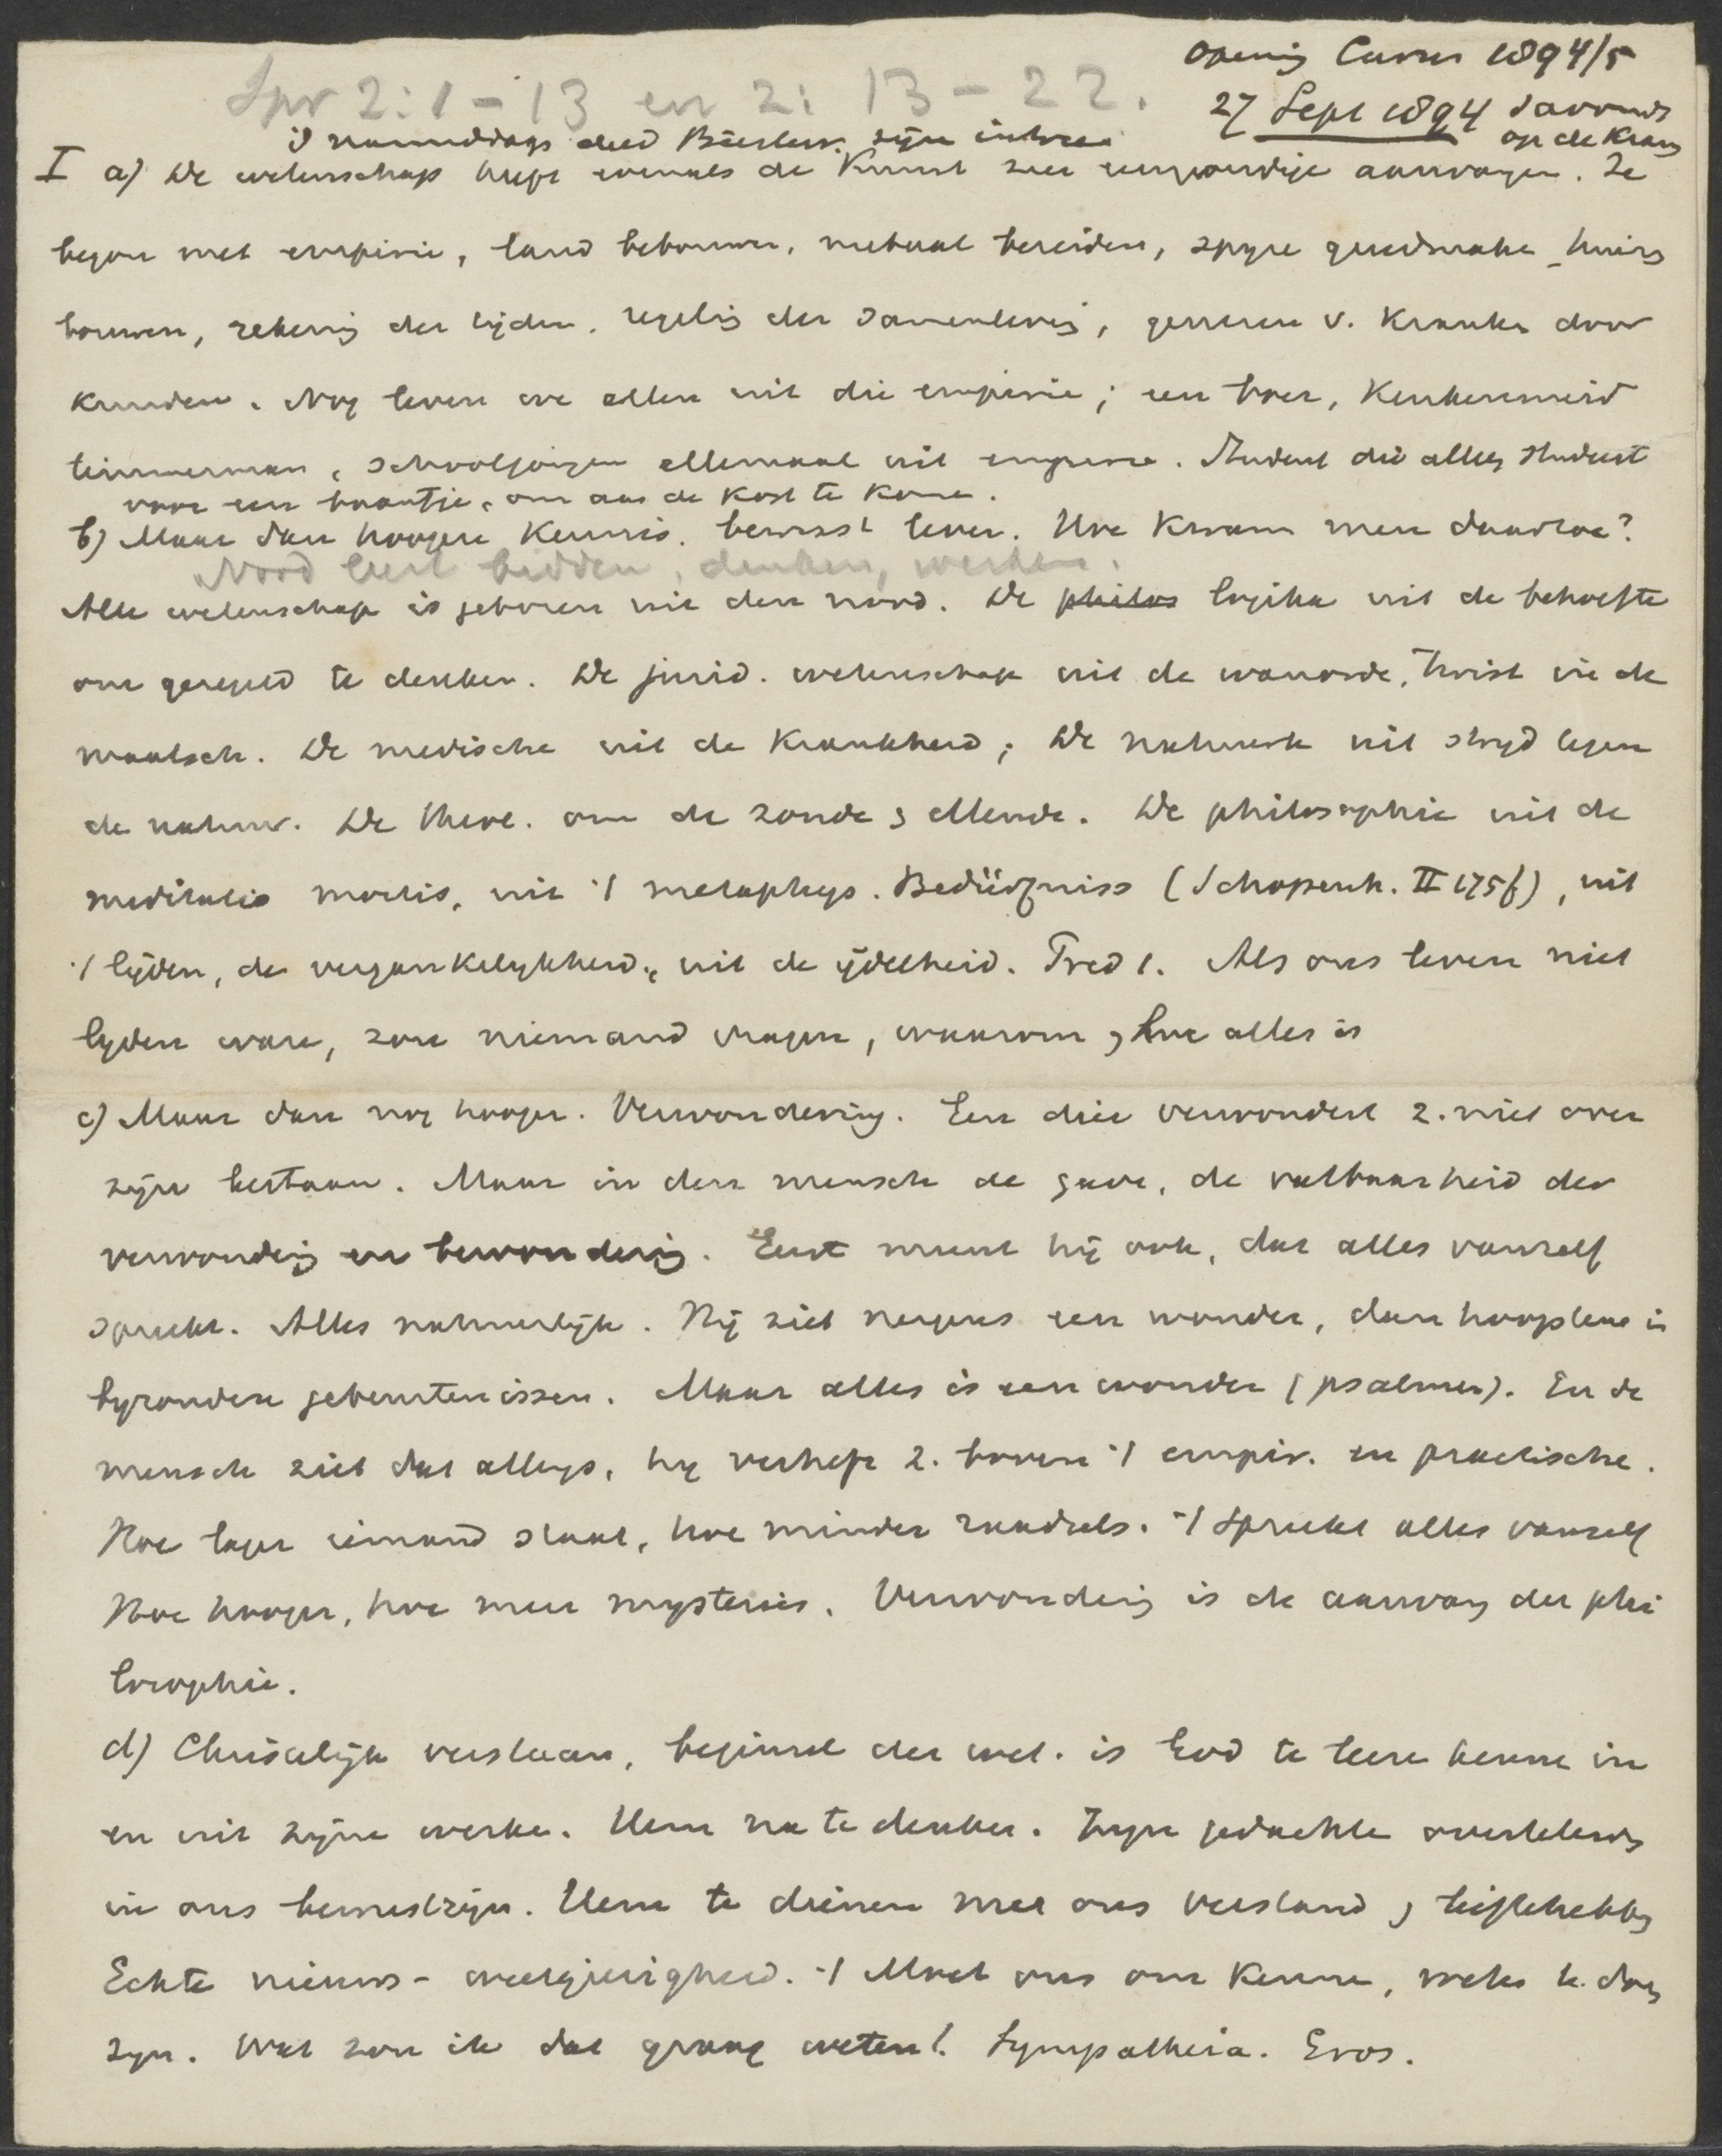 Opening Cursus 1894/5
Spr 2:1-13 en 2:13-22.
27 Sept 1894 savonds
op de Kran
's namiddags deed Biesterv. zijn intree
I a) De wetenschap heeft evenals de Kunst zeer eenvoudige aanvangen. Ze
begon met empirie, land bebouwen, metaal bereiden, spyze gereedmaken huizen
bouwen, rekening der tijden. regeling der samenleving, genezen v. Kranken door
Kruiden. Nog leven we allen uit die empirie; een boer, Keukenmeid
timmerman, schooljongen allemaal uit empirie. Student die alleen studeert
voor een baantje, om aan de Kost te Komen.
b) Maar dan hoogere Kennis. bewust leven. Hoe Kwam men daartoe?
Nood leert bidden, denken, werken.
Alle wetenschap is geboren uit den nood. De philos logika uit de behoefte
om geregeld te denken. De jurid. wetenschap uit de wanorde, twist in de
maatsch. De medische uit de Krankheid; De natuurk uit stryd tegen
de natuur. De theol. om de zonde & ellende. De philosophie uit de
meditatio mortis, uit 't metaphys. Bedürfniss (Schopenh. II 175f), uit
't lijden, de vergankelykheid, uit de ijdelheid. Pred 1. Als ons leven niet
lyden ware, zou niemand vragen, waarom & hoe alles is
c) Maar dan nog hooger. Verwondering. Een dier verwondert z. niet over
zijn bestaan. Maar in den mensch de gave, de vatbaarheid der
verwondering en bewondering. Eerst meent hij ook, dat alles vanzelf
spreekt. Alles natuurlijk. Hij ziet nergens een wonder, dan hoogstens in
byzondere gebeurtenissen. Maar alles is een wonder (psalmen). En de
mensch ziet dat allengs, hy verheft z. boven 't empir. en practische.
Hoe lager iemand staat, hoe minder raadsels. 't Spreekt alles vanzelf
Hoe hooger, hoe meer mysteries. Verwondering is de aanvang der phi
losophie.
d) Christelijk verstaan, beginsel der wet. is God te leeren kennen in
en uit zijne werken. Hem na te denken. Zijn gedachten overtebrengen
in ons bewustzijn. Hem te dienen met ons verstand & lief te hebben
Echte nieuws- weetgierigheid. 't Moet ons om Kennen, weten te doen
zyn. Wat zou ik dat graag weten!. Sympatheia. Eros.